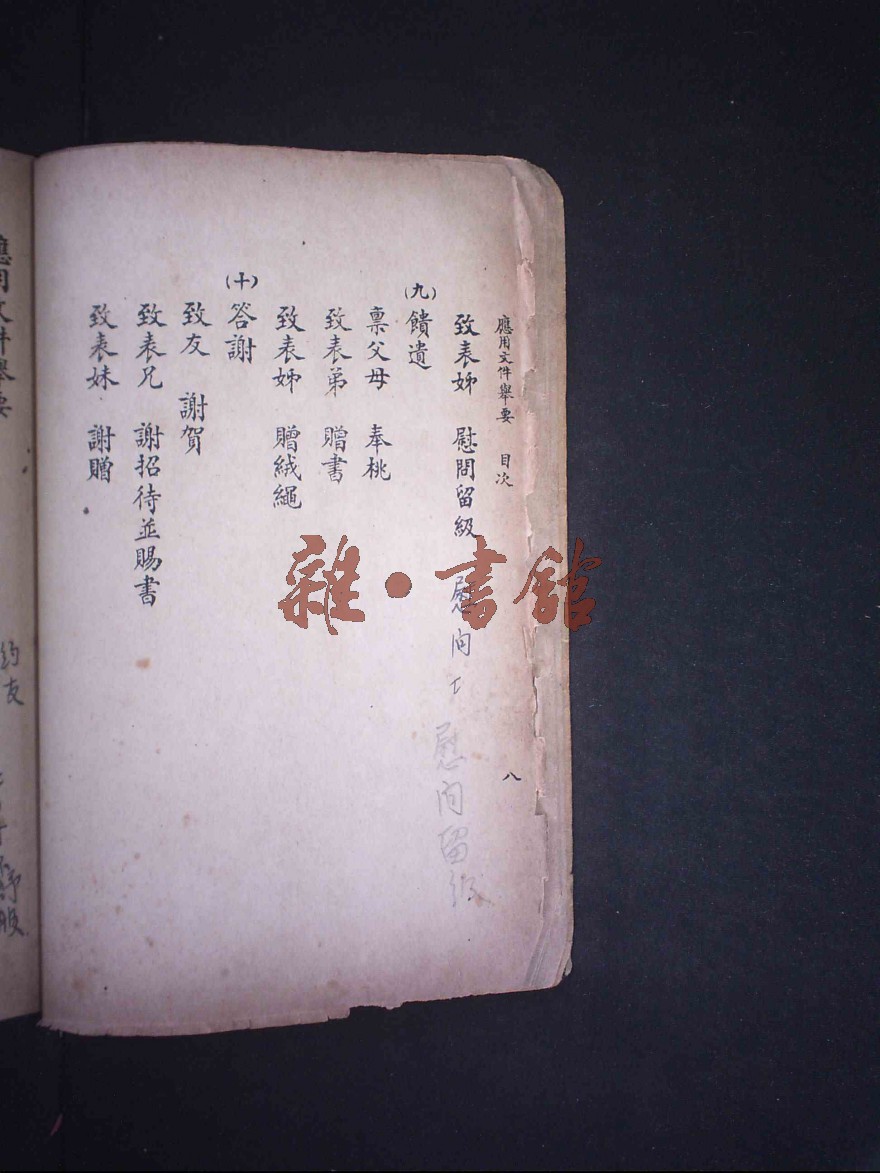 應用文件舉要 目次 八
致表姊 慰問留級 慰问
慰问留级
(九)饋遺
稟父母 奉桃
致表弟 贈書
致表姊 贈絨繩
(十)答謝
致友 謝賀
致表兄 謝招待並賜書
致表妹 謝贈
應用文件舉要
约友
雜·書館